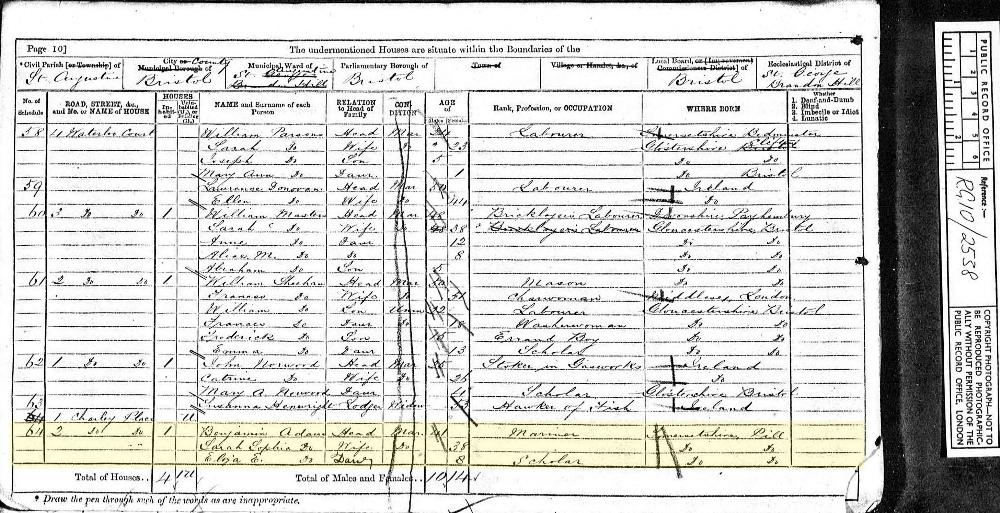 Page 10]
The undermentioned Houses are situate within the Boundaries of the
*Civil Parish [or Township] of
City or County
Municipal Borough of
Municipal Ward of
Parliamentary Borough of
Town of
Village or Hamlet, &c., of
Local Board, or [Improvement Commissioners District] of
Ecclesiastical District of
St. Augustine
Bristol
St. Augustine
Bristol
Bristol
St. George Brandon Hill
No. of Schedule
ROAD, STREET, &c., and No. or NAME of HOUSE
HOUSES
NAME and Surname of each Person
RELATION to Head of Family
CONDITION
AGE of
Rank, Profession, or OCCUPATION
WHERE BORN
Whether
1. Deaf-and-Dumb
2. Blind
3. Imbecile or Idiot
4. Lunatic
58 4 Waterloo Court William Parsons Head Mar Labourer Somersetshire Bedminster
Sarah Do Wife Do 23 Glostershire
Joseph Do Son 5 Do Do
Mary Ann Do Daur 1 Do Bristol
59 Lawrence Donovan Head Mar Labourer Ireland
Ellen Do Wife Do 44 Do
60 3 Do Do 1 William Masters Head Mar 48 Bricklayer's Labourer Devonshire, Payhembury
Sarah Do Wife Do 38 Bricklayer's Labourer Gloucestershire, Bristol
Anne Do Daur 12 Do Do
Alice M. Do Do 8 Do Do
Abraham Do Son 5 Do Do
61 2 Do Do 1 William Sheehan Head Mar 50 Mason
Frances Do Wife Do 51 Charwoman Middlesex, London
William Do Son Unm Labourer Gloucestershire Bristol
Frances Do Daur 18 Washerwoman Do Do
Frederick Do Son Errand Boy Do Do
Emma Do Daur 13 Scholar Do Do
62 1 Do Do 1 John Norwood Head Mar Stoker in Gasworks Ireland
Wife Do 26 Do
Mary A. Norwood Daur Scholar Glostershire Bristol
63 Lodger Widow Hawker of Fish Ireland
1 Charley Place U
64 2 Do Do 1 Benjamin Adams Head Mar 41 Mariner Somersetshire, Pill
Sarah Sophia Do Wife Do 38 Do Do
Eliza E. Do Daur 8 Scholar Do Do
Total of Houses.. 4 1U Total of Males and Females.. 10 14
* Draw the pen through such of the words as are inappropriate.
PUBLIC RECORD OFFICE
1 2 3 4 5 6
Reference :-
RG10/2538
COPYRIGHT PHOTOGRAPH—NOT TO BE REPRODUCED PHOTOGRAPHICALLY WITHOUT PERMISSION OF THE PUBLIC RECORD OFFICE, LONDON